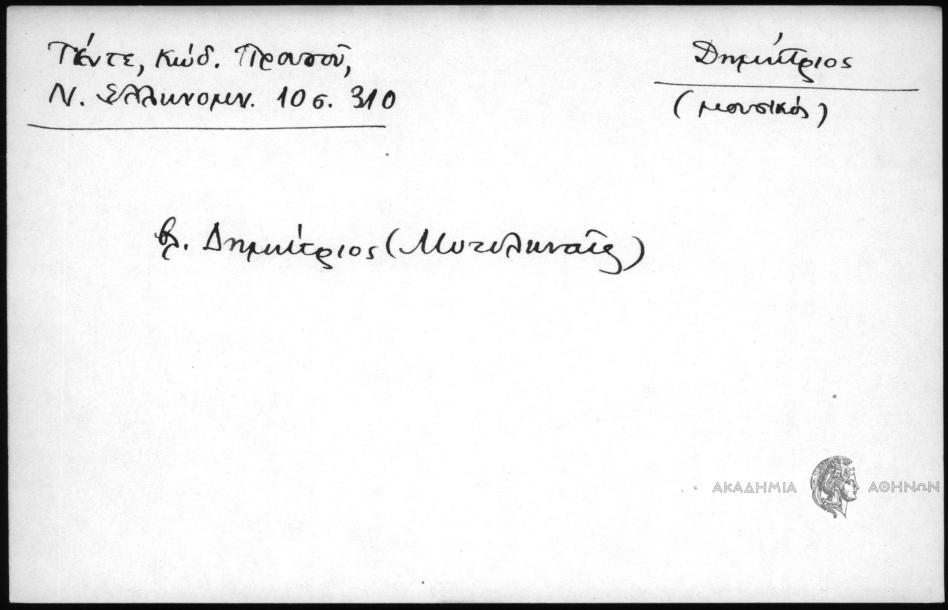 Γέντε, Κώδ. Πρωτοῦ,
Ν. Ἑλληνομν. 10 σ. 310
Δημήτριος
(μουσικός)
βλ. Δημήτριος (Μυτιληναῖος)
ΑΚΑΔΗΜΙΑ ΑΘΗΝΩΝ